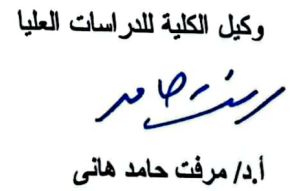 وكيل الكلية للدراسات العليا
أ.د/ مرفت حامد هانى